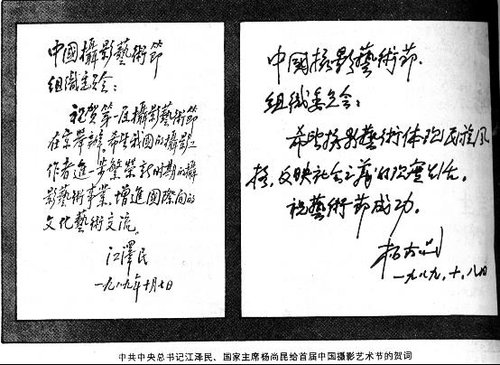 中國攝影藝術節
組織委員会：
祝贺第一届攝影藝術節
在京举辦。希望我國的攝影工
作者進一步繁榮新时期的攝
影藝術事業，增進國際间的
文化藝術交流。
江澤民
一九八九年十月七日
中國攝影藝術節
组織委员会：
希望摄影藝術体现民族风
格，反映社会主義的现实生活。
祝藝術節成功。
杨尚昆
一九八九、十、八日
中共中央总书记江泽民、国家主席杨尚昆给首届中国摄影艺术节的贺词